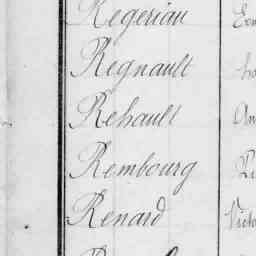 Regeriau
Regnault
Rehault
Rembourg
Renard